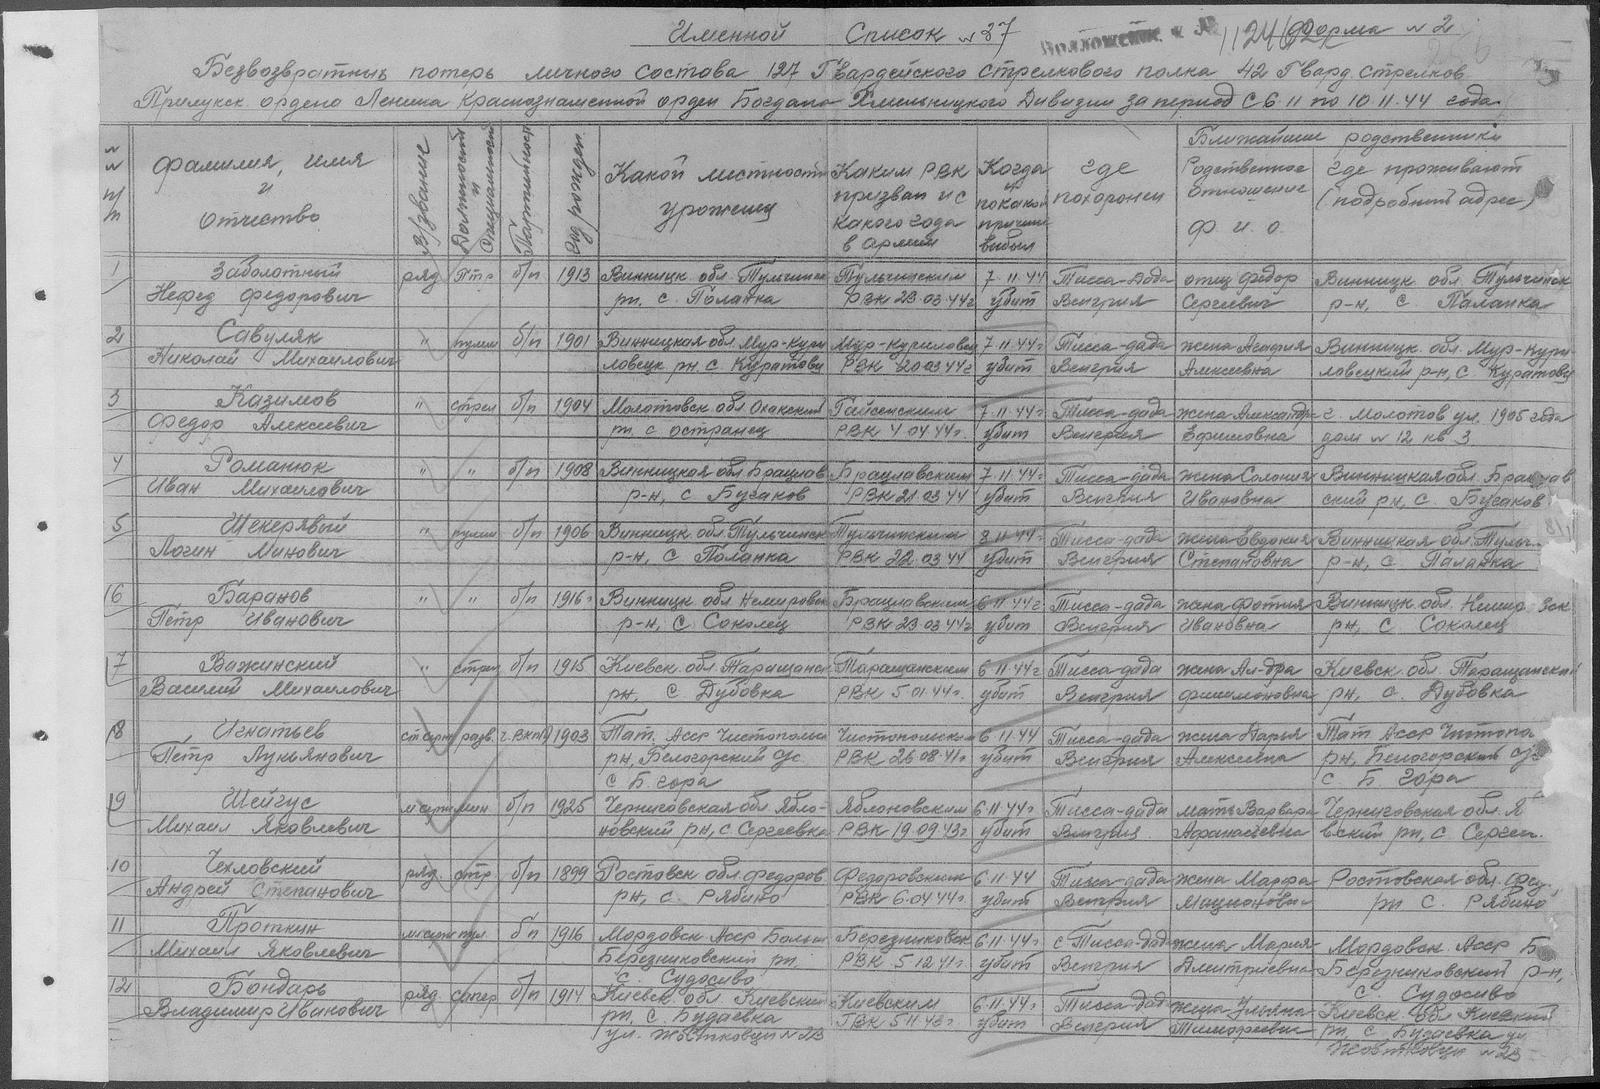 Именной Список № 37
Приложение к № 11246
Форма № 2
Безвозвратных потерь личного состава 127 Гвардейского стрелкового полка 42 Гвард. стрелков
Прилукск. ордена Ленина Краснознаменной орден Богдана Хмельницкого Дивизии за период с 6.11 по 10.11.44 года
№ № п/п
Фамилия, имя и Отчество
В/звание
Должность и Специальность
Партийность
Год рожден.
Какой местности урожец
Каким РВК призван и с какого года в армии
Когда и по какой причине выбыл
Где похоронен
Ближайшие родственники
Родственное отношение Ф. И. О.
Где проживают (подробный адрес)
1 Заболотный ряд птр б/п 1913 Винницк. обл. Тульчинск Тульчинским 7.11.44 Тисса-Дада отец Федор Винницк. обл. Тульчинск
Нефед Федорович рн, с. Паланка РВК 23.03.44г убит Венгрия Сергеевич р-н, с. Паланка
2 Савуляк " пулем б/п 1901 Винницкая обл Мур-Кури Мур-Куриловец 7.11.44г Тисса-дада жена Агафия Винницк. обл. Мур-Кури-
Николай Михайлович ловецк рн. с. РВК 20.03.44г убит Венгрия Алексеевна ловецкий р-н, с
3 Казимов " стрел б/п 1904 Молотовск. обл. Гайсинским 7.11.44г Тисса-дада жена Александр г. Молотов ул. 1905 года
Федор Алексеевич рн. с РВК 4.04.44г. убит Венгрия Ефимовна дом № 12 кв 3
4 Романюк " " б/п 1908 Винницкая обл Брацлав Брацлавским 7.11.44г Тисса-дада жена Винницкая обл. Брацлав
Иван Михайлович р-н, с Бугаков РВК 21.03.44 убит Венгрия Ивановна ский рн, с. Бугаков
5 Шекерявый " пулем б/п 1906 Винницк. обл. Тульчинск Тульчинским 8.11.44г Тисса-дада жена Евдокия Винницкая обл. Тульч.
Логин Минович р-н, с Паланка РВК 22.03.44 убит Венгрия Степановна р-н, с. Паланка
6 Баранов " " б/п 1916г Винницк. обл Немировск Брацлавским 6.11.44г Тисса-дада жена Фотия Винницк. обл. Немир
Петр Иванович р-н, с. Соколец РВК 23.03.44г убит Венгрия Ивановна рн, с. Соколец
7 Важинский " стрел б/п 1915 Киевск. обл. Таращанск Таращанским 6.11.44г Тисса-дада жена Ал-дра Киевск. обл. Таращанский
Василий Михайлович рн, с. Дубовка РВК 5.01.44г. убит Венгрия Филимоновна рн, с. Дубовка
8 Игнатьев ст серж разв. ч. ВКП/б 1903 Тат. Асср Чистопольск Чистопольским 6.11.44 Тисса-дада жена Дарья Тат Асср Чистопо
Петр Лукьянович рн, Белогорский с/с РВК 26.08.41г. убит Венгрия Алексеевна рн, Белогорский с/с
с Б. гора с Б гора
9 Шейгус м серж мин б/п 1925 Черниговская обл Ябло- Яблоновским 6.11.44г Тисса-дада мать Варвара Черниговская обл. Я
Михаил Яковлевич новский рн, с Сергеевка РВК 19.09.43г убит Венгрия Афанасьевна вский рн, с. Сергеев.
10 Чехловский ряд. стр б/п 1899 Ростовск обл. Федоров Федоровским 6.11.44 Тисса-дада жена Марфа Ростовская обл. Фед.
Андрей Степанович рн, с. Рябино РВК 6.04.44г. убит Венгрия рн с. Рябино
11 Проткин м серж пул. б п 1916 Мордовск Асср Больш Березниковск 6.11.44г с Тисса-дада жена Мария Мордовск. Асср Б
Михаил Яковлевич Березниковский рн. РВК 5.12.41г. убит Венгрия Дмитриевна Березниковский р-н,
с. Судосиво с. Судосиво
12 Бондарь ряд сапер б/п 1914 Киевск. обл. Киевский Киевским 6.11.44г Тисса-дада жена Ульяна Киевск. обл Киевский
Владимир Иванович рн, с. Будаевка ГВК 5.11.43г. убит Венгрия Тимофеевна рн, с. Будаевка ул
ул. Жовтковци № 23 Жовтковци № 23